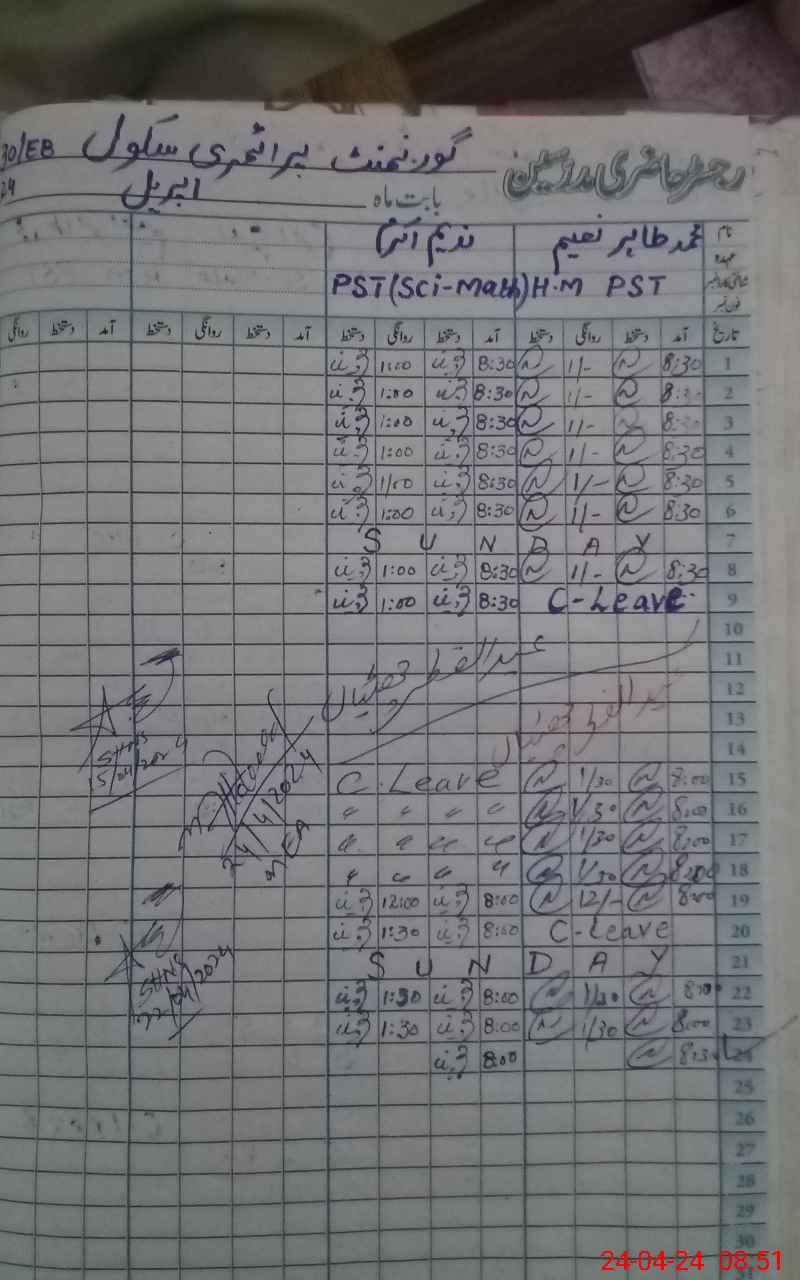 رجسٹر حاضری مدرسین گورنمنٹ پرائمری سکول 30/EB
بابت ماہ اپریل 24
نام محمد طاہر نعیم ندیم
عہدہ H.M PST PST (Sci-Math)
تاریخ آمد دستخط روانگی دستخط آمد دستخط روانگی دستخط آمد دستخط روانگی دستخط آمد دستخط روانگی
1 8:30 1/- 8:30 1:00
2 8:30 1/- 8:30 1:00
3 8:30 1/- 8:30 1:00
4 8:30 1/- 8:30 1:00
5 8:30 1/- 8:30 1/00
6 8:30 1/- 8:30 1:00
7 SUNDAY
8 8:30 1/- 8:30 1:00
9 C-Leave 8:30 1:00
10
11
12
13
14
15 8:00 1/30 C.Leave
16 8:00 1/30 " " " "
17 8:00 1/30 " " " "
18 8:00 1/30 " " " "
19 8:00 12/- 8:00 12:00
20 C-Leave 8:00 1:30
21 SUNDAY
22 8:00 1/30 8:00 1:30
23 8:00 1/30 8:00 1:30
24 8:30 8:00
25
26
27
28
29
30
15/04/2024
24/4/2024
22/04/2024
24-04-24 08:51